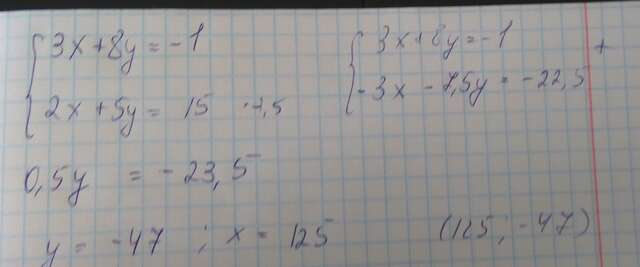 3x+8y=-1
2x+5y= 15 ·1,5
3x+8y=-1 +
-3x-7,5y=-22,5
0,5y = -23,5
y=-47 ; x= 125 (125;-47)